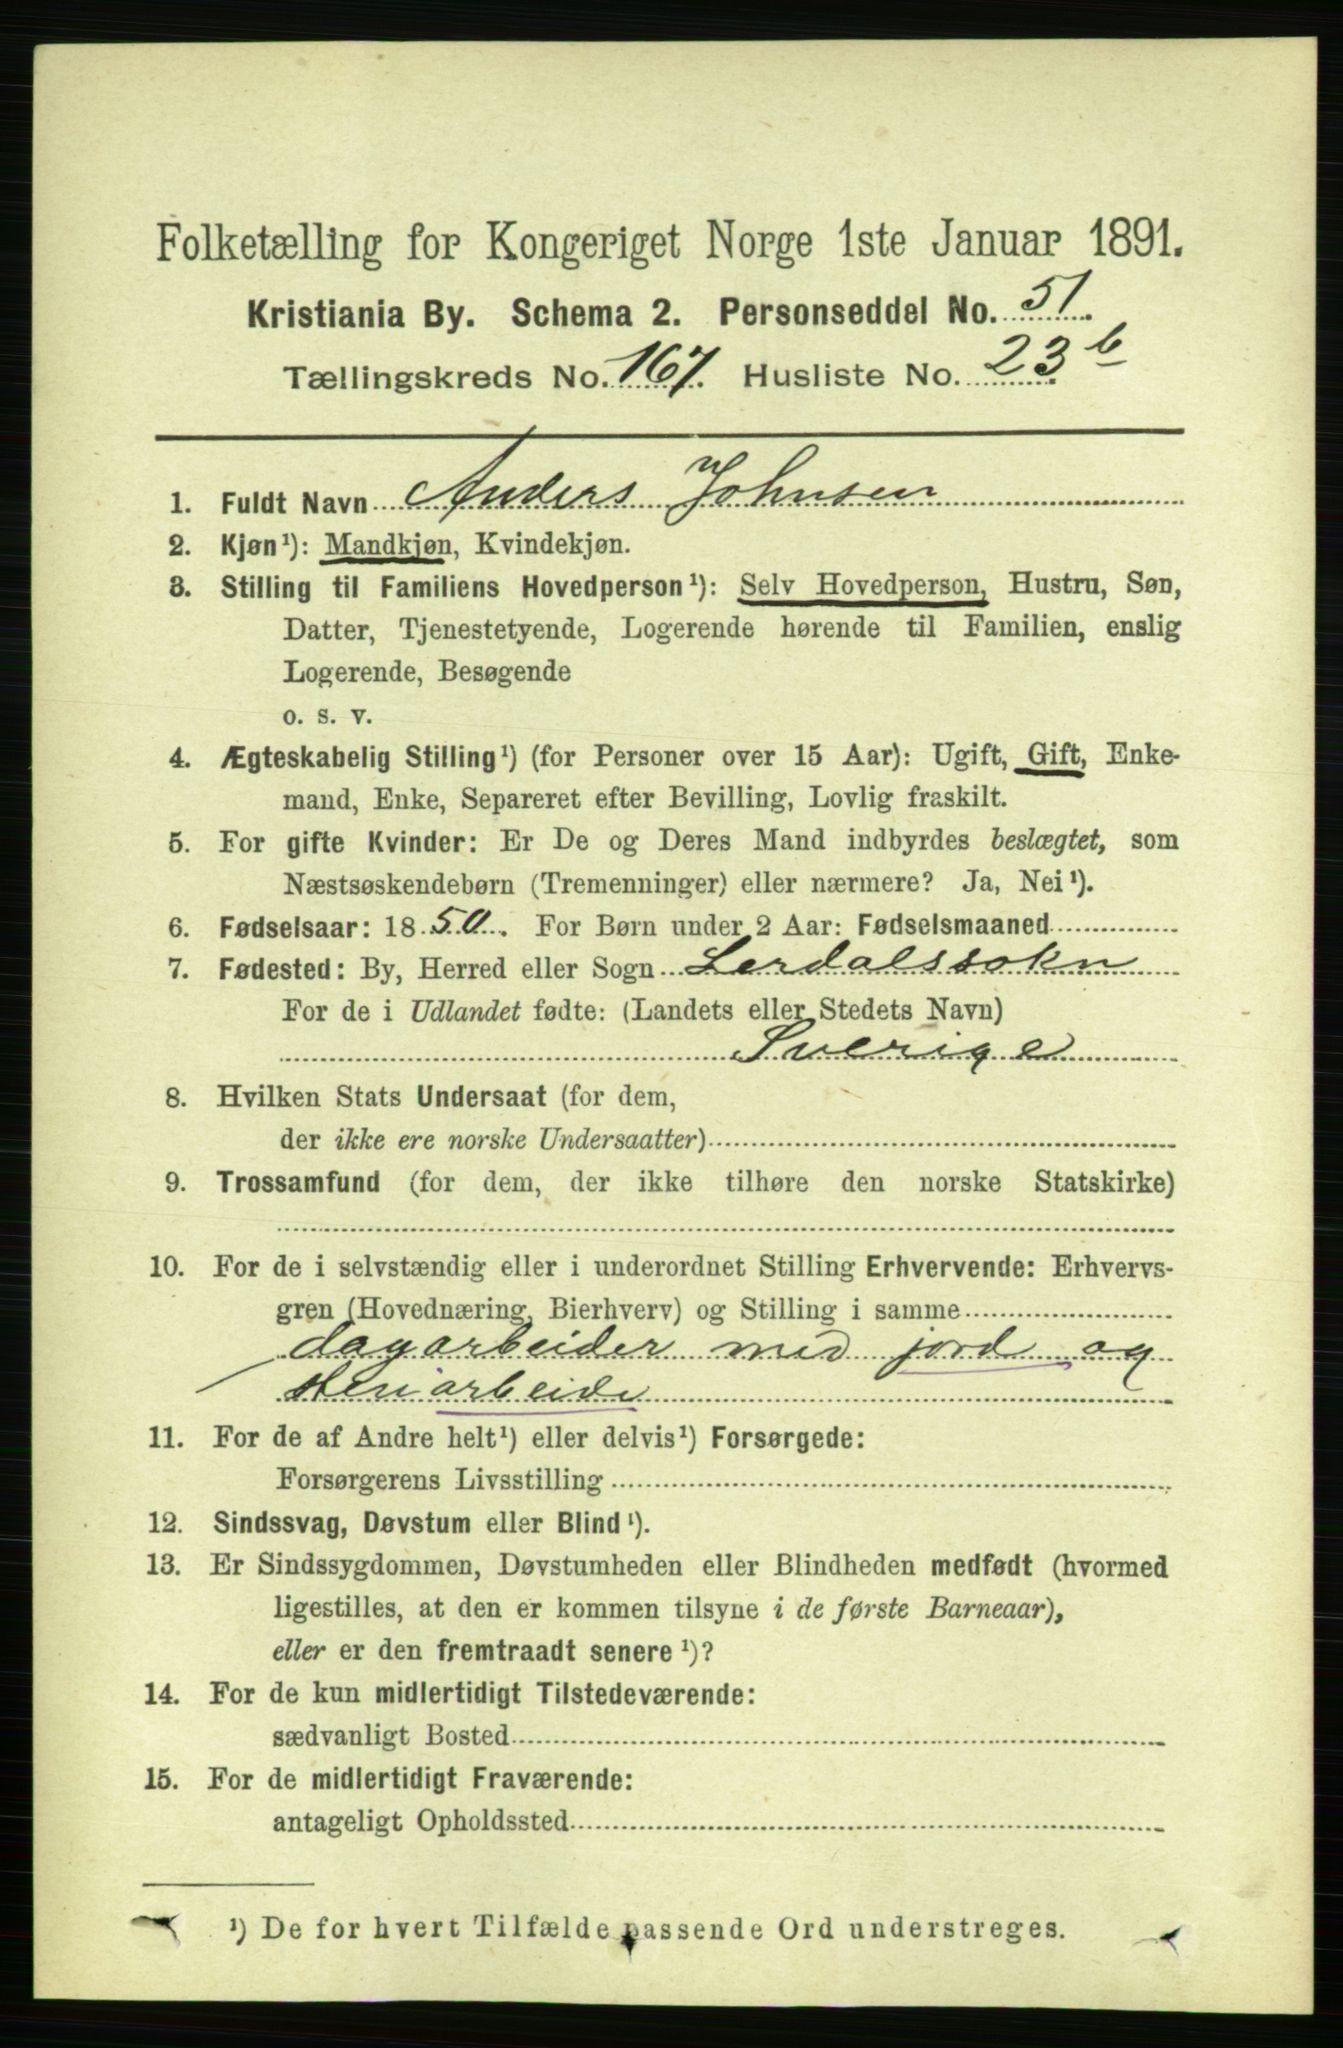 Folketælling for Kongeriget Norge 1ste Januar 1891.
Kristiania By. Schema 2. Personseddel No. 51.
Tællingskreds No. 167. Husliste No. 23 b
1. Fuldt Navn Anders Johnsen
2. Kjøn¹): Mandkjøn, Kvindekjøn.
3. Stilling til Familiens Hovedperson¹): Selv Hovedperson, Hustru, Søn,
Datter, Tjenestetyende, Logerende hørende til Familien, enslig
Logerende, Besøgende
o. s. v.
4. Ægteskabelig Stilling¹) (for Personer over 15 Aar): Ugift, Gift, Enke-
mand, Enke, Separeret efter Bevilling, Lovlig fraskilt.
5. For gifte Kvinder: Er De og Deres Mand indbyrdes beslægtet, som
Næstsøskendebørn (Tremenninger) eller nærmere? Ja, Nei¹).
6. Fødselsaar: 1850. For Børn under 2 Aar: Fødselsmaaned
7. Fødested: By, Herred eller Sogn Lerdalssokn
For de i Udlandet fødte: (Landets eller Stedets Navn)
Sverige
8. Hvilken Stats Undersaat (for dem,
der ikke ere norske Undersaatter)
9. Trossamfund (for dem, der ikke tilhøre den norske Statskirke)
10. For de i selvstændig eller i underordnet Stilling Erhvervende: Erhvervs-
gren (Hovednæring, Bierhverv) og Stilling i samme
dagarbeider med jord og
stenarbeide
11. For de af Andre helt¹) eller delvis¹) Forsørgede:
Forsørgerens Livsstilling
12. Sindssvag, Døvstum eller Blind¹).
13. Er Sindssygdommen, Døvstumheden eller Blindheden medfødt (hvormed
ligestilles, at den er kommen tilsyne i de første Barneaar),
eller er den fremtraadt senere¹)?
14. For de kun midlertidigt Tilstedeværende:
sædvanligt Bosted
15. For de midlertidigt Fraværende:
antageligt Opholdssted
¹) De for hvert Tilfælde passende Ord understreges.